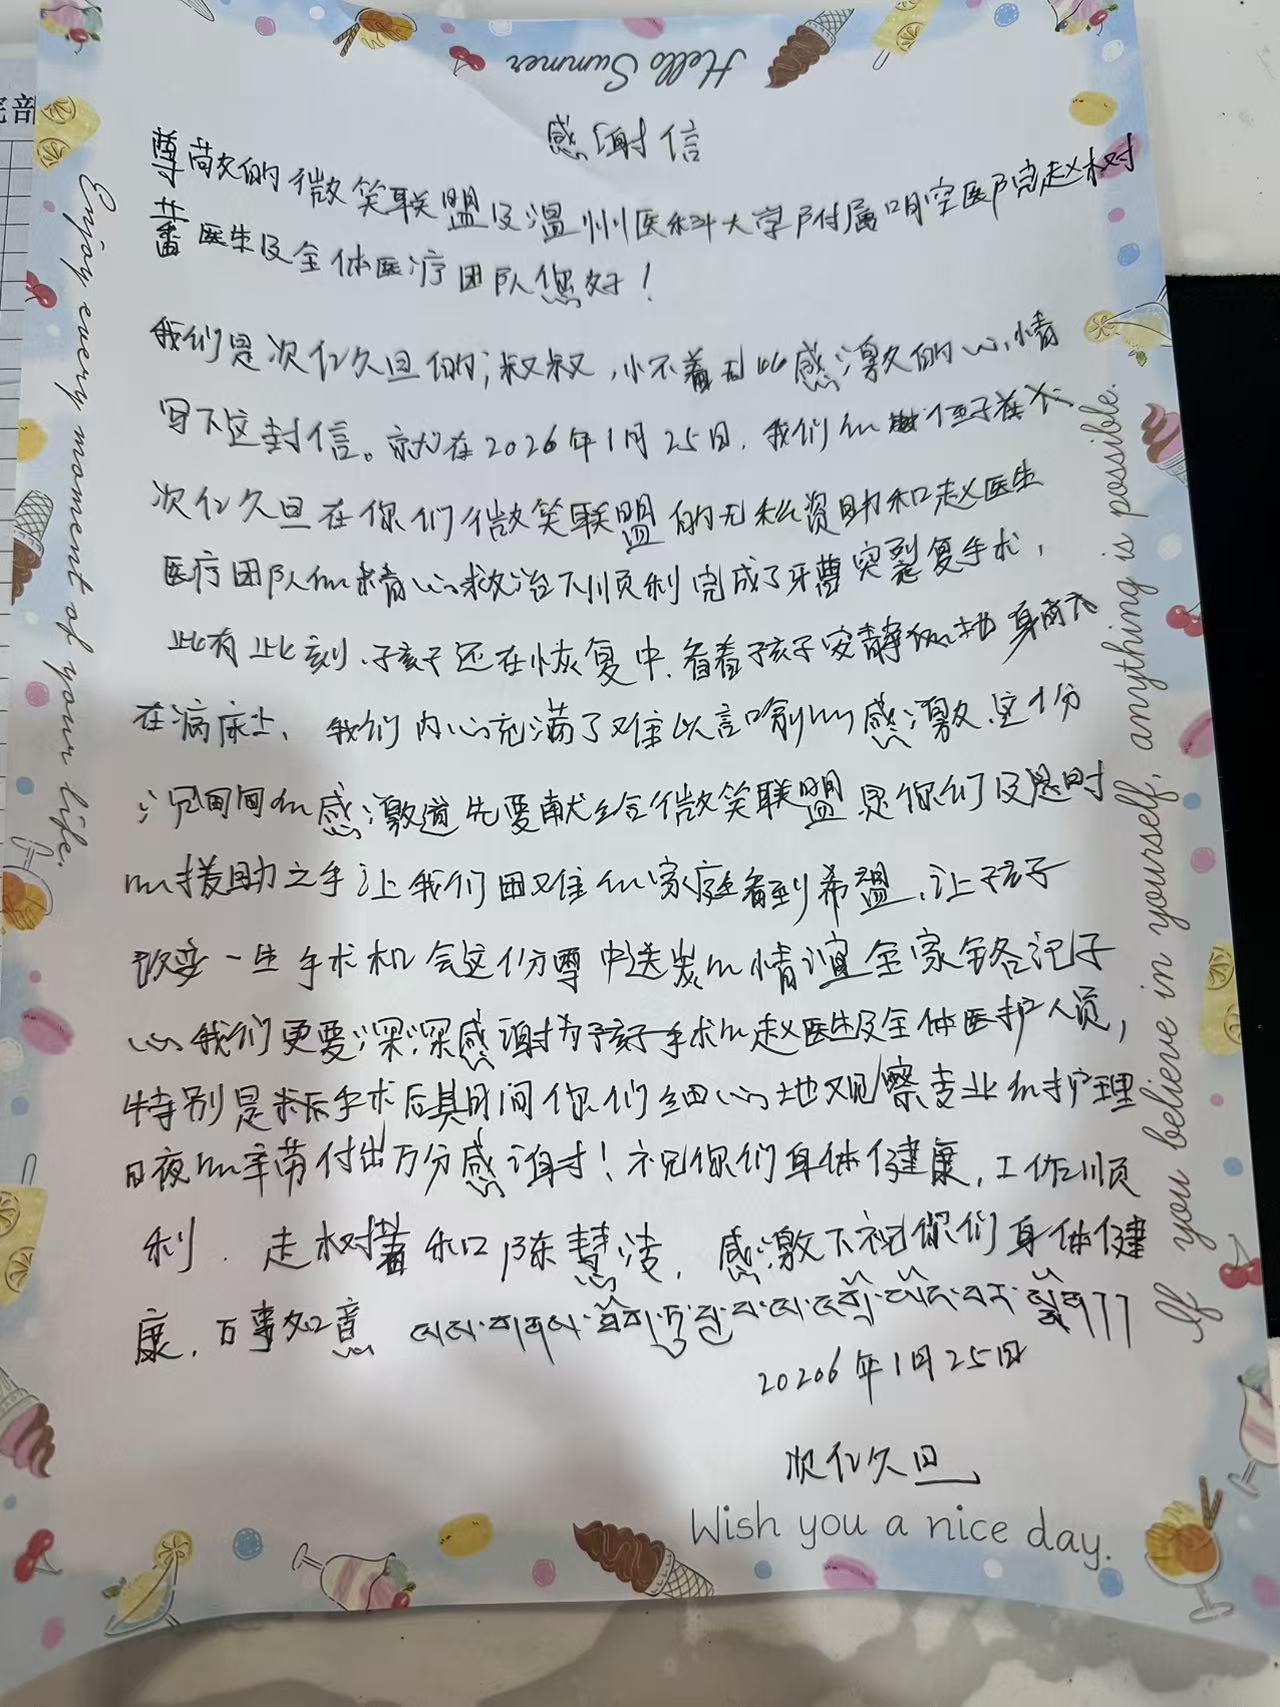 院部
Hello Summer
感谢信
尊敬的微笑联盟及温州医科大学附属口腔医院赵树
蕃医生及全体医疗团队您好！
我们是次仁久旦的叔叔，怀着无比感激的心情
写下这封信。就在2026年1月25日，我们的侄子在
次仁久旦在你们微笑联盟的无私资助和赵医生
医疗团队的精心救治下顺利完成了牙槽突裂复手术，
此有此刻，孩子还在恢复中，看着孩子安静的地身
在病床上，我们内心充满了难以言喻的感激，这份
沉甸甸的感激道先要献给微笑联盟是你们及恩时
的援助之手让我们困难的家庭看到希盟，让孩子
改变一生手术机会这份尊中送炭的情谊全家铭记子
心我们更要深深感谢为孩子手术的赵医生及全体医护人员，
特别是手术后其月间你们细心地观察专业的护理
日夜的辛劳付出万分感谢！祝你们身体健康，工作顺
利．赵树蕃和陈慧凌，感激下祝你们身体健
康，万事如意
20206年1月25日
次仁久旦
Wish you a nice day.
Enjoy every moment of your life.
If you believe in yourself, anything is possible.